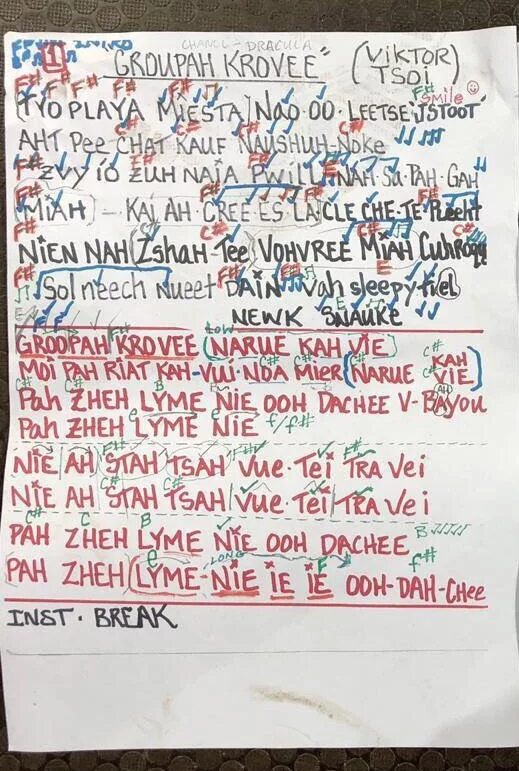 CHANCL - DRACULA
1 "GROUPAH KROVEE" (VIKTOR TSOI)
F# F F# F# F# F# Smile
(TYO PLAYA MIESTA) NAO·OO·LEETSE 'JSTOOT'
C# C# C#
AHT PEE CHAT KAUF NAUSHUH-NOKE
F# ZVYIO ZUH NAJA PWILL NAH·SA·PAH·GAH
F# F# F# F#
(MIAH) - KAJ AH·CREE ES LA CLE CHE-TE·PLEEHT
F# C# C#
NIEN NAH (ZshAH-Tee) VOHVREE MIAH
F# F# E
Sol neech nueet DAIN vah sleepy
F F NEWK SNAUKE
F# LOW
GROOPAH KROVEE (NARUE KAH VIE)
C# C# C#
MOI PAH RIAT KAH-VUI-NDA MIER (NARUE KAH VIE)
C# B AH
PAH ZHEH LYME NIE OOH DACHEE V-BAYOU
e e
PAH ZHEH LYME NIE f/f#
F# F#
NIE AH STAH TSAH VUE·TEI TRAVEI
C# C#
NIE AH STAH TSAH VUE·TEI TRAVEI
C# C B
PAH ZHEH LYME NIE OOH DACHEE B
e LONG F f#
PAH ZHEH (LYME-NIE IE IE OOH-DAH-CHEE
INST. BREAK